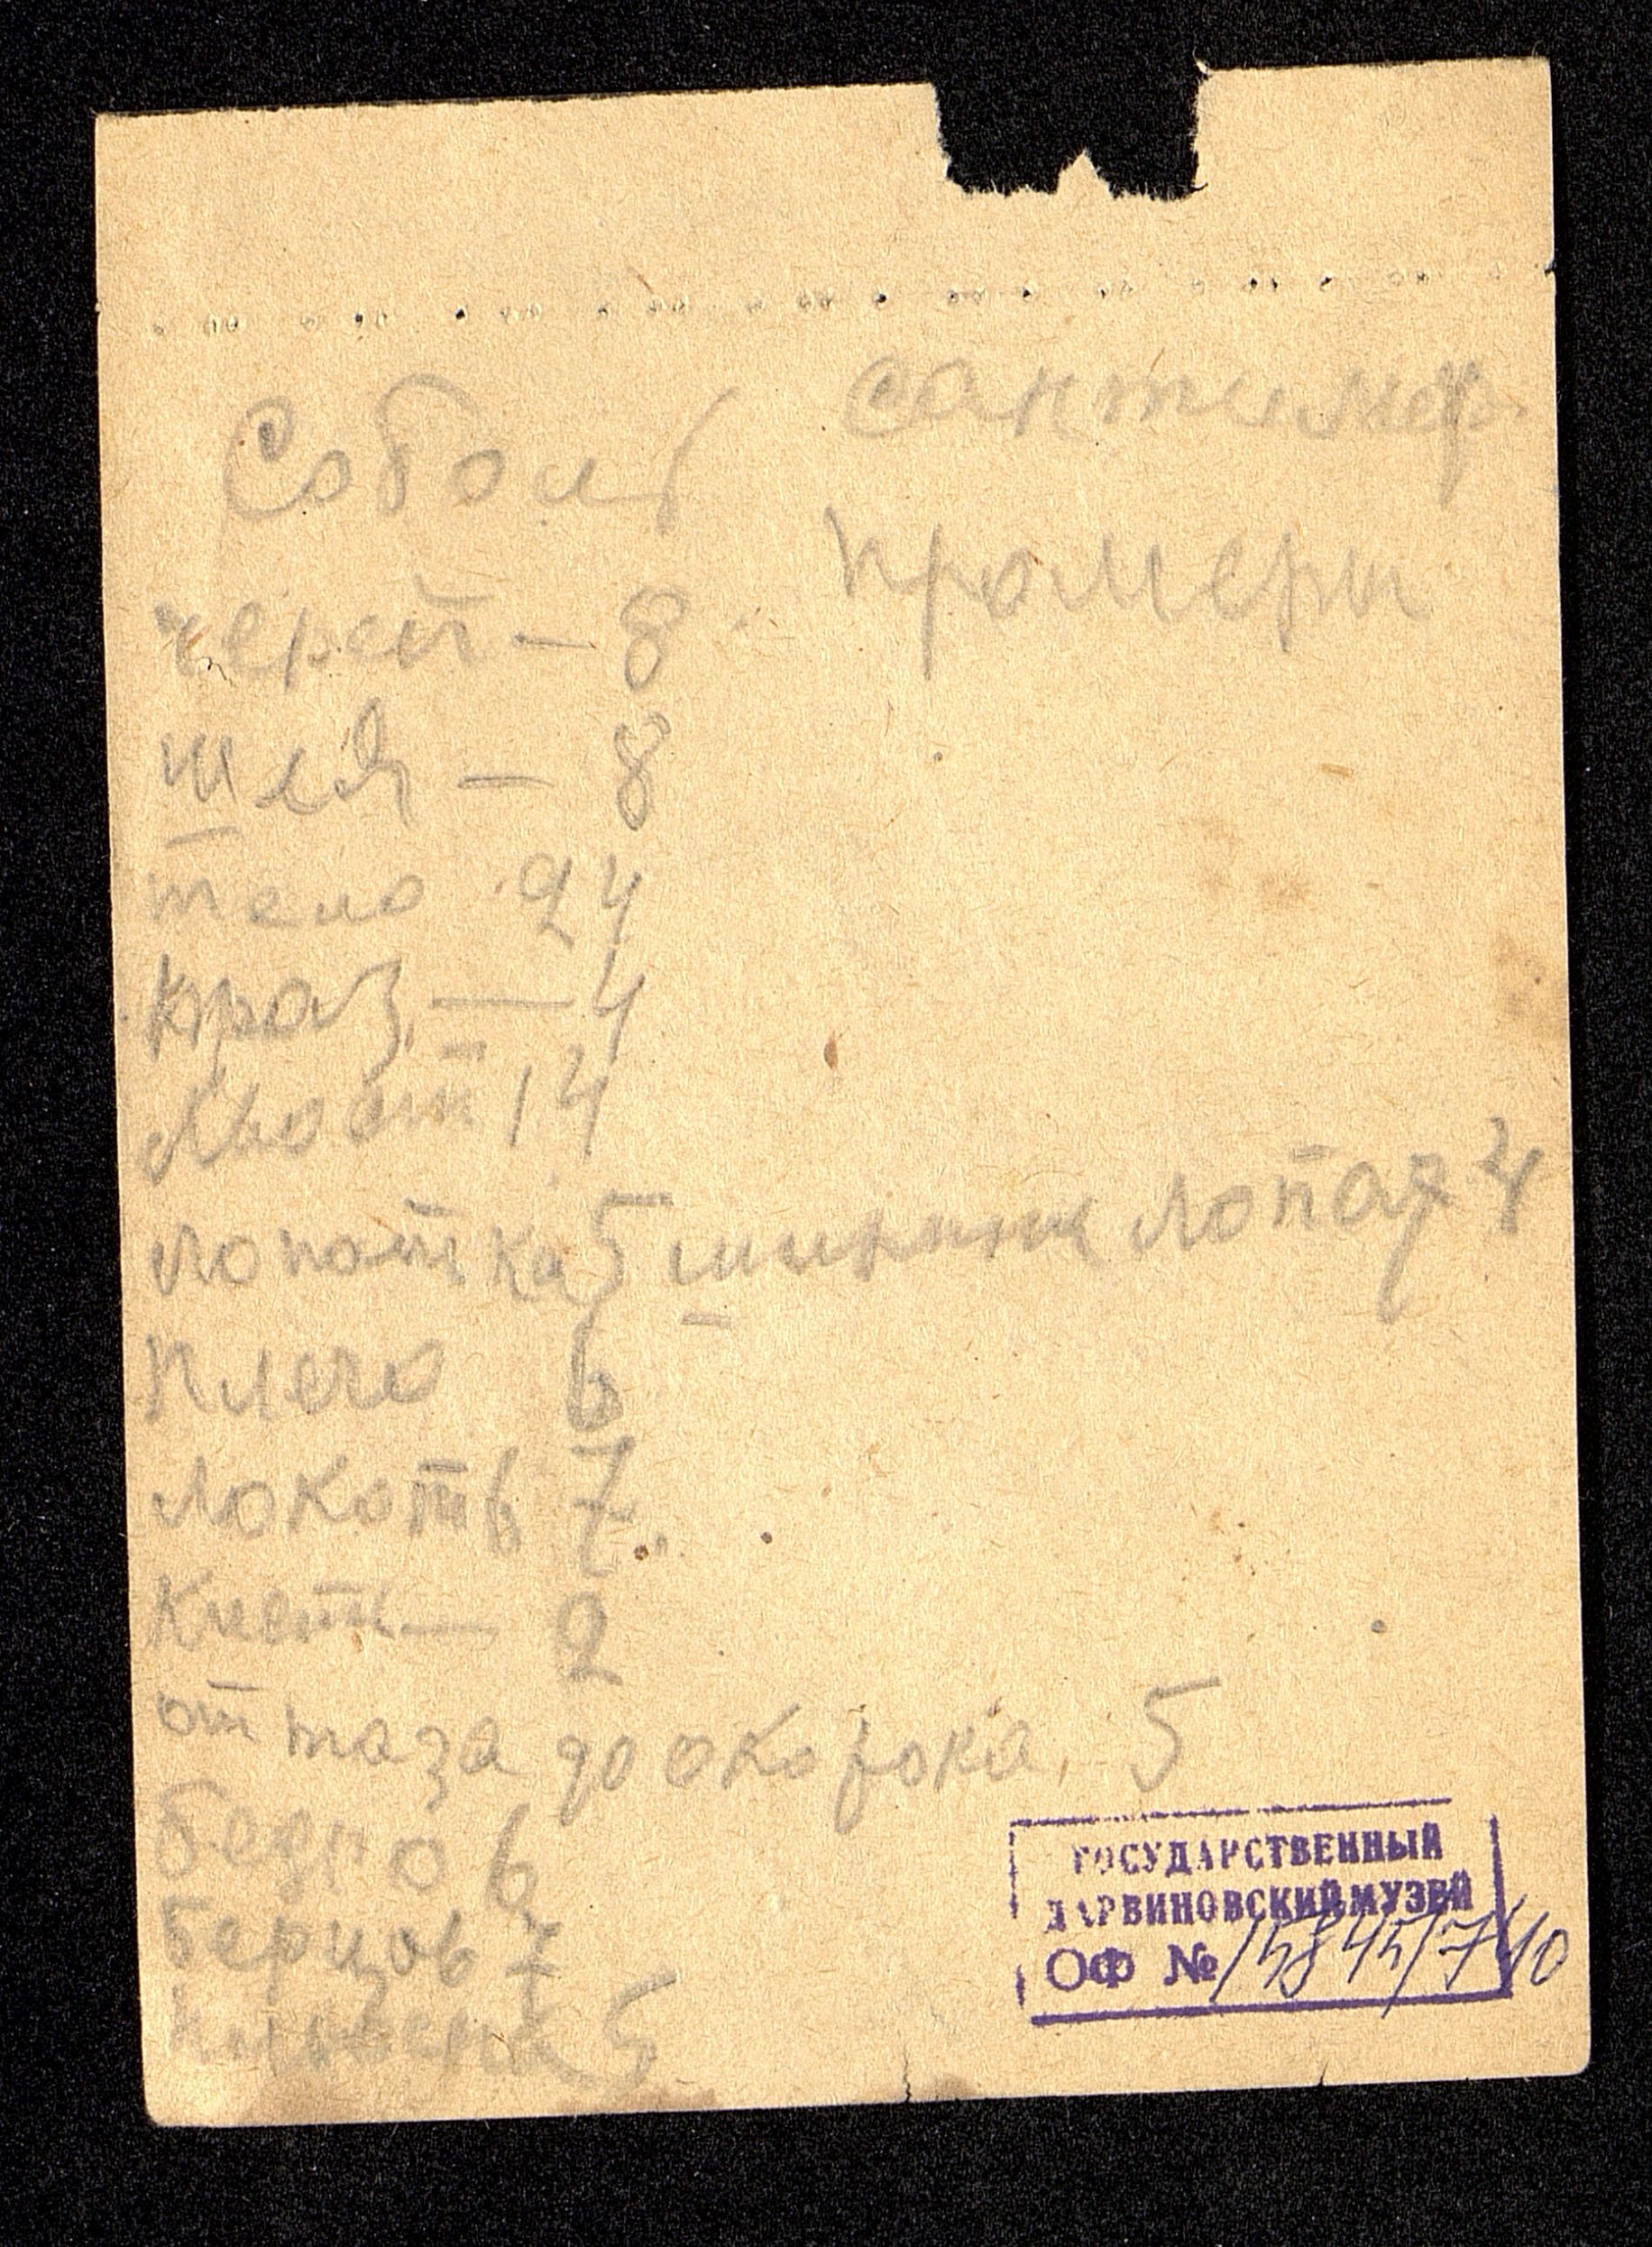 Соболь сантиметр.
промеры
череп — 8
шея — 8
тело 24
14
лопатка 5 ширина лопат 4
плечо 6
локоть 7.
кисть — 2
от таза до окорока 5
бедро 6
берцов 7
5
ГОСУДАРСТВЕННЫЙ
ДАРВИНОВСКИЙ МУЗЕЙ
ОФ №